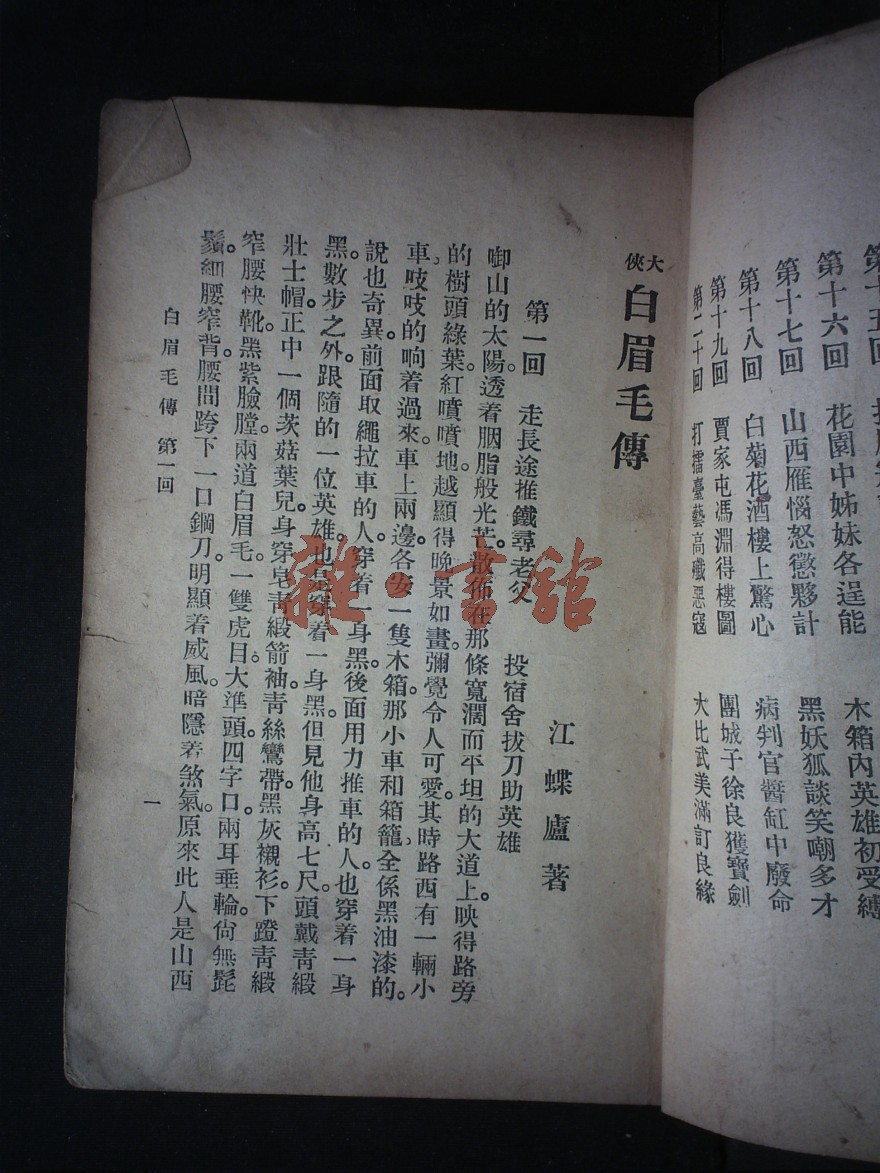 第十六回　花園中姊妹各逞能　黑妖狐談笑嘲多才
木箱內英雄初受縛
第十七回　山西雁惱怒懲夥計　病判官醬缸中廢命
第十八回　白菊花酒樓上驚心　團城子徐良獲寶劍
第十九回　賈家屯馮淵得樓圖　大比武美滿訂良緣
第二十回　打擂臺藝高殲惡寇
大俠
白眉毛傳
江蝶廬著
第一回　走長途推鐵尋老父　投宿舍拔刀助英雄
啣山的太陽。透着胭脂般光芒。散佈在那條寬濶而平坦的大道上。映得路旁
的樹頭綠葉。紅噴噴地越顯得晚景如畫。彌覺令人可愛。其時路西有一輛小
車。吱吱的响着過來。車上兩邊。各安一隻木箱。那小車和箱籠。全係黑油漆的。
說也奇異。前面取繩拉車的人。穿着一身黑。後面用力推車的人。也穿着一身
黑。數步之外。跟隨的一位英雄。也是穿着一身黑。但見他身高七尺。頭戴青緞
壯士帽。正中一個茨菇葉兒。身穿皂青緞箭袖。青絲鸞帶。黑灰襯衫。下蹬青緞
窄腰快靴。黑紫臉膛。兩道白眉毛。一雙虎目。大準頭。四字口。兩耳垂輪。尙無髭
鬚。細腰窄背。腰間跨下一口鋼刀。明顯着威風。暗隱着煞氣。原來此人是山西
白眉毛傳　第一回
一
雜·書館